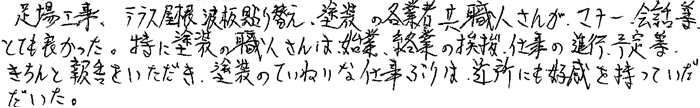 足場工事、テラス屋根波板貼り替え、塗装の各業者共職人さんが、マナー・会話等、
とても良かった。特に塗装の職人さんは、始業、終業の挨拶、仕事の進行、予定等、
きちんと報告をいただき、塗装のていねいな仕事ぶりは、近所にも好感を持っていた
だいた。